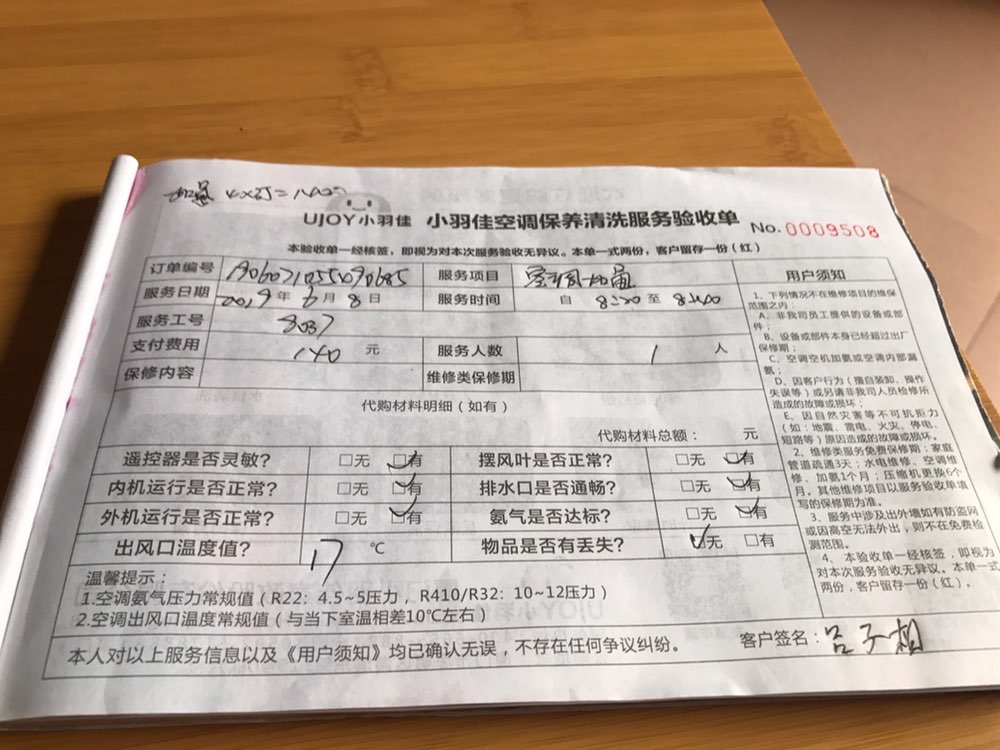 UJOY小羽佳 小羽佳空调保养清洗服务验收单 No. 0009508
本验收单一经核签，即视为对本次服务验收无异议。本单一式两份，客户留存一份（红）
订单编号 服务项目
服务日期 2019年6月8日 服务时间 自 8:20 至 8:40
服务工号 8037
支付费用 140 元 服务人数 1 人
保修内容 维修类保修期
代购材料明细（如有）
代购材料总额： 元
遥控器是否灵敏？ □无 □有 摆风叶是否正常？ □无 □有
内机运行是否正常？ □无 □有 排水口是否通畅？ □无 □有
外机运行是否正常？ □无 □有 氨气是否达标？ □无 □有
出风口温度值？ 17 ℃ 物品是否有丢失？ □无 □有
温馨提示：
1.空调氨气压力常规值（R22：4.5~5压力，R410/R32：10~12压力）
2.空调出风口温度常规值（与当下室温相差10℃左右）
本人对以上服务信息以及《用户须知》均已确认无误，不存在任何争议纠纷。
客户签名：吕子相
用户须知
1、下列情况不在维修项目的维保
范围之内：
A、非我司员工提供的设备或部
件；
B、设备或部件本身已经超过出厂
保修期；
C、空调空机加氨或空调内部漏
氨；
D、因客户行为（擅自装卸、操作
失误等）或另请非我司人员检修所
造成的故障或损坏；
E、因自然灾害等不可抗拒力
（如：地震、雷电、火灾、停电、
短路等）原因造成的故障或损坏。
2、维修类服务免费保修期：家庭
管道疏通3天；水电维修、空调维
修、加氨1个月；压缩机更换6个
月。其他维修项目以服务验收单填
写的保修期为准。
3、服务中涉及出外墙如有防盗网
或因高空无法外出，则不在免费检
测范围。
4、本验收单一经核签，即视为
对本次服务验收无异议。本单一式
两份，客户留存一份（红）。